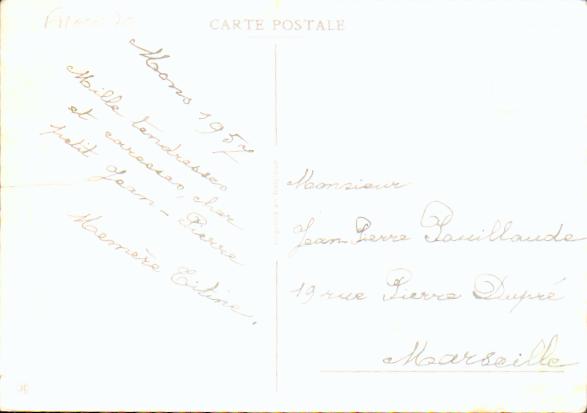 CARTE POSTALE
Mons 1957
Mille tendresses
et caresses, cher
petit Jean-Pierre
Memère Titine.
Monsieur
Jean Pierre Pouillaude
19 rue Pierre Dupré
Marseille